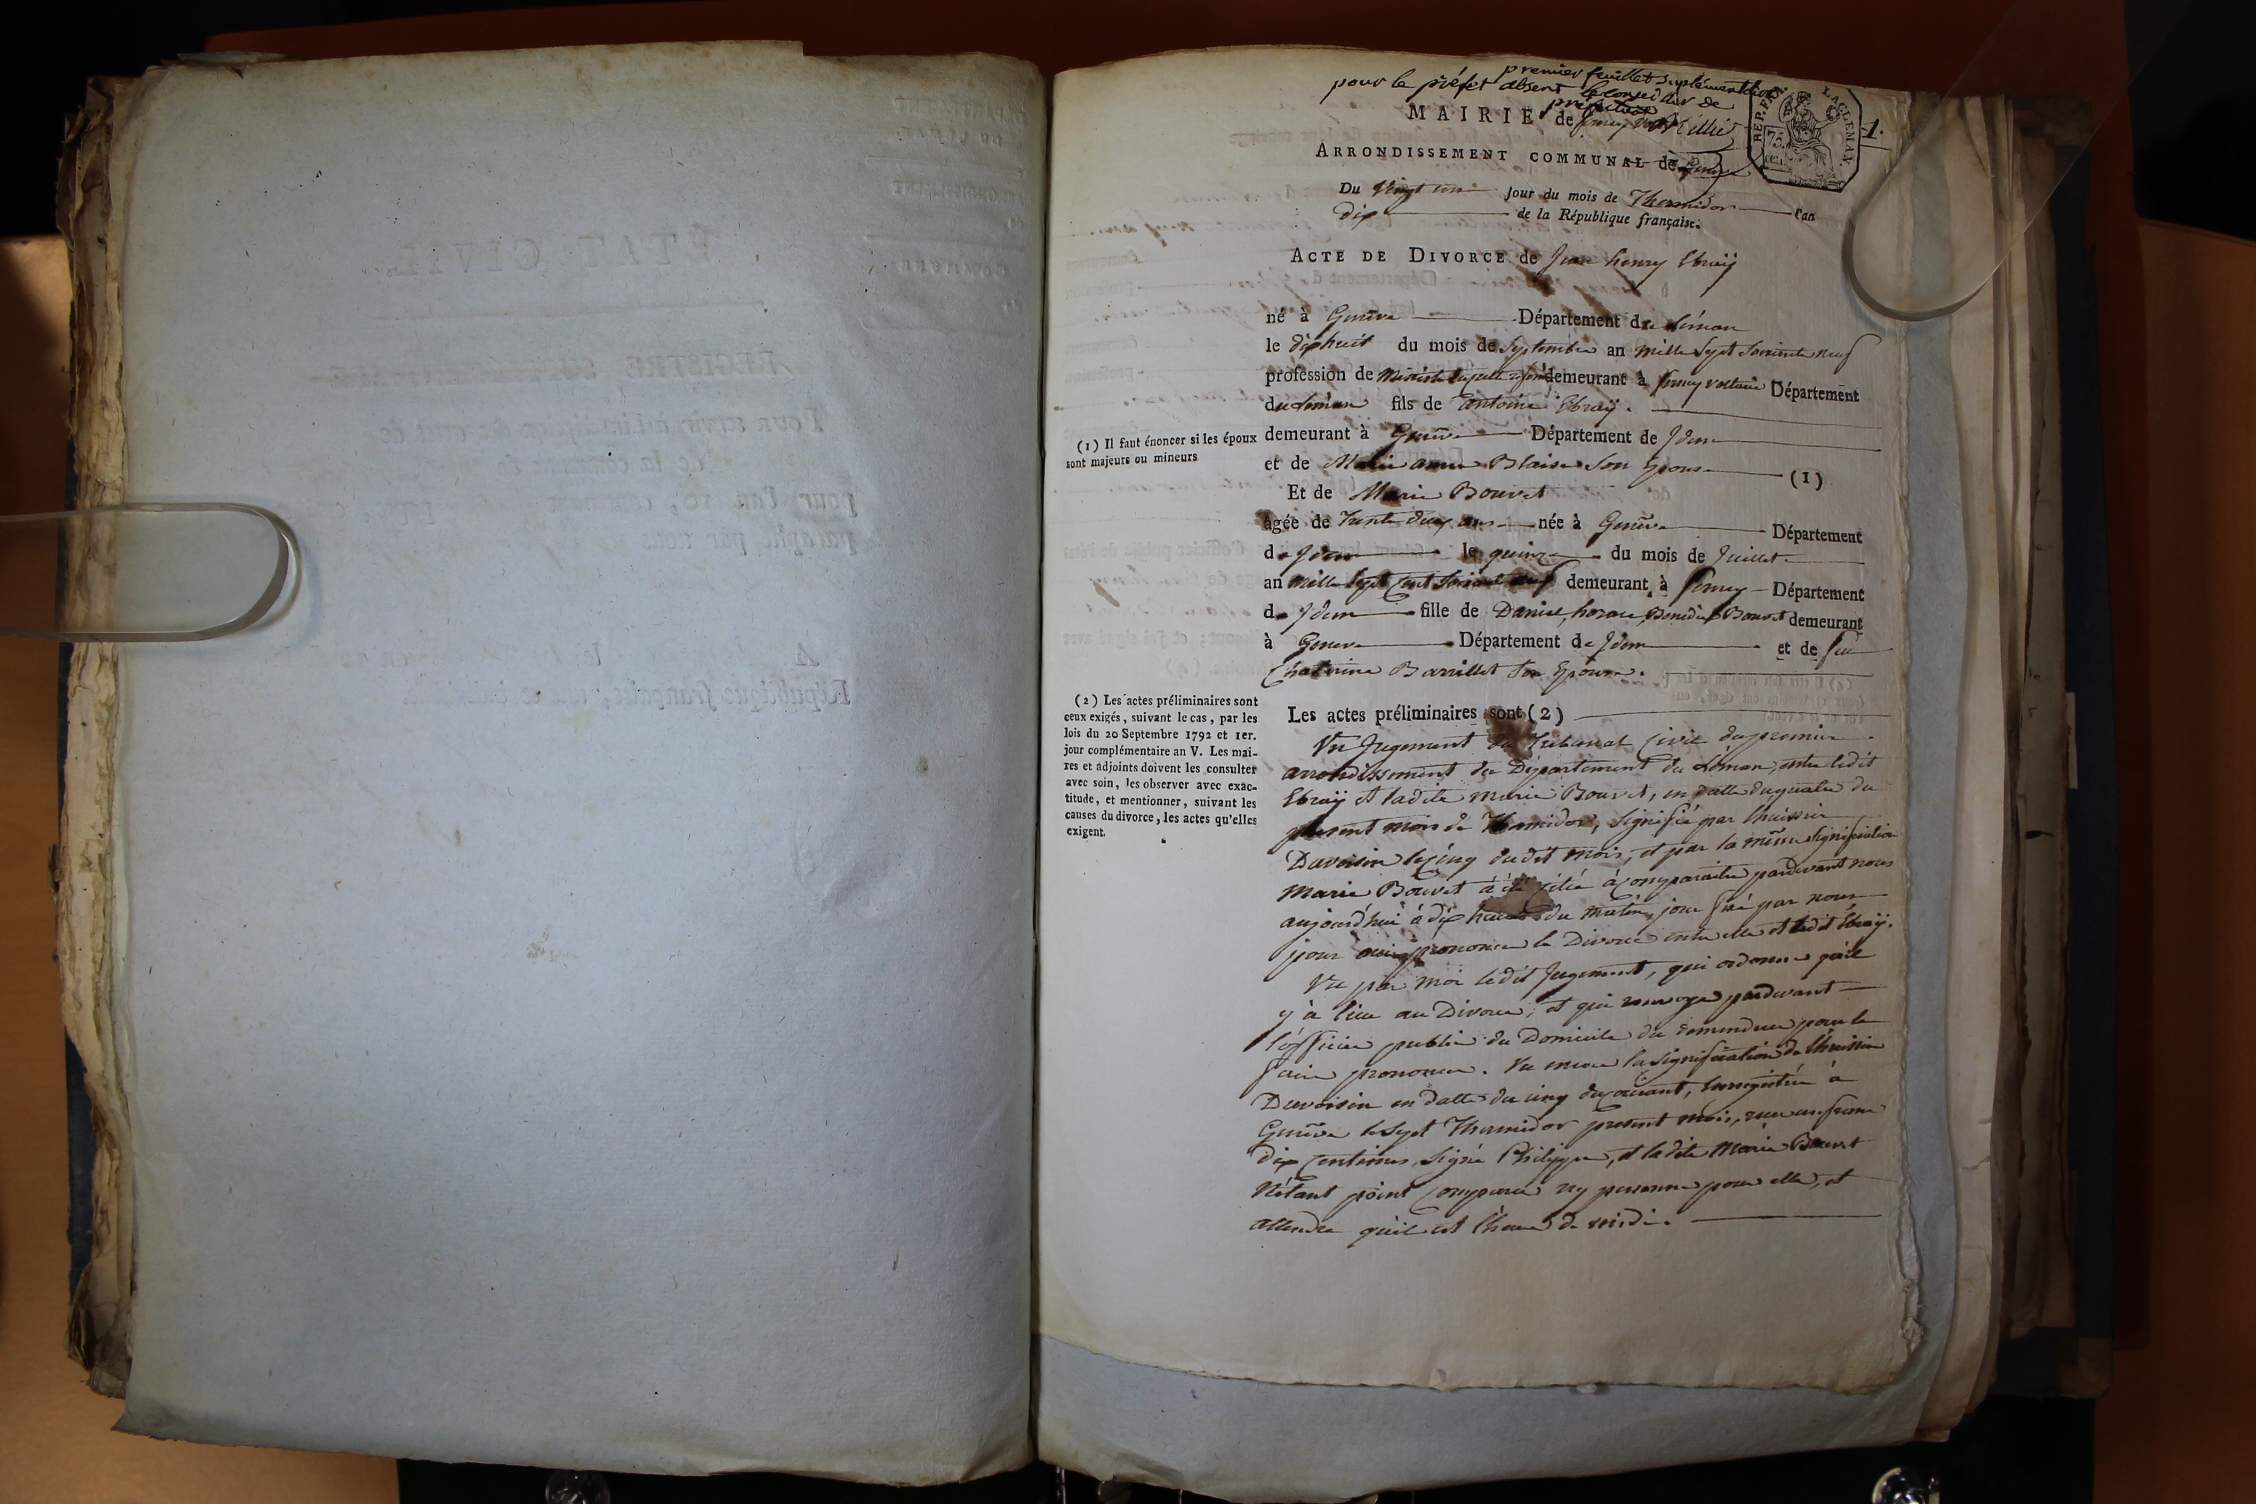 premier feuillet suplémentaire
pour le préfet absent le conseiller de
préfecture
MAIRIE de ferney
REP. FRA.
75
CEN.
1.
ARRONDISSEMENT COMMUNAL de
Du Vingt un Jour du mois de Thermidor l'an
dix de la République française.
ACTE DE DIVORCE de Jean henry Ebraÿ
né à Genêve Département du Léman
le dixhuit du mois de Septembre an mille Sept Soixante neuf
profession de demeurant à ferney voltaire Département
du Léman fils de antoine Ebraÿ.
demeurant à Genêve Département de Idem
et de Marie anne Blaise Son Epouse (1)
(1) Il faut énoncer si les époux
sont majeurs ou mineurs
Et de Marie Bouvet
âgée de Trente deux ans née à Genêve Département
de Idem le quinze du mois de Juillet
an mille Sept Cent Soixante neuf demeurant à ferney Département
de Idem fille de Daniel, horace, Benedict Bouvet demeurant
à Geneve Département de Idem et de feu
Chaterine Barrillet Son Epouse.
(2) Les actes préliminaires sont
ceux exigés, suivant le cas, par les
lois du 20 Septembre 1792 et 1er.
jour complémentaire an V. Les mai-
res et adjoints doivent les consulter
avec soin, les observer avec exac-
titude, et mentionner, suivant les
causes du divorce, les actes qu'elles
exigent.
Les actes préliminaires sont (2)
Un Jugement du Tribunal Civil du premier
arrondissement du Département du Léman, entre ledit
Ebraÿ et ladite marie Bouvet, en datte du quatre du
present mois de Thermidor, Signifié par l'huissier
Duvoisin le cinq du dit mois, et par la même signification
Marie Bouvet à été citée à comparaitre pardevant nous
aujourd'hui à dix heures du matin, jour fixé par nous
pour prononcer le Divorce entre elle et ledit Ebraÿ.
Vu par moi ledit Jugement, qui ordonne qu'il
y à lieu au Divorce, et qui renvoye pardevant
l'officier public du Domicile du demendeur pour le
faire prononcer. Vu encore la Signification de l'huissier
Duvoisin en datte du cinq du courant, Enregistrée à
Genêve le Sept Thermidor present mois, reçu un franc
dix Centimes, Signé Philippe, et ladite Marie Bouvet
N'étant point comparue ny personne pour elle, et
attendu qu'il est l'heure de midi.